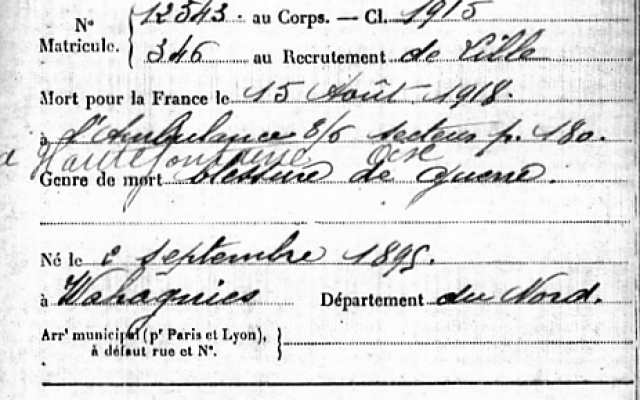 N° 12543. au Corps. — Cl. 1915
Matricule. 346 au Recrutement de Lille
Mort pour la France le 15 Août 1918.
à l'Ambulance 8/6 secteur p. 180.
à Hautefontaine Oise
Genre de mort blessure de guerre.
Né le 2 septembre 1895.
à Wahagnies Département du Nord.
Arrt municipal (pr Paris et Lyon),
à défaut rue et N°.